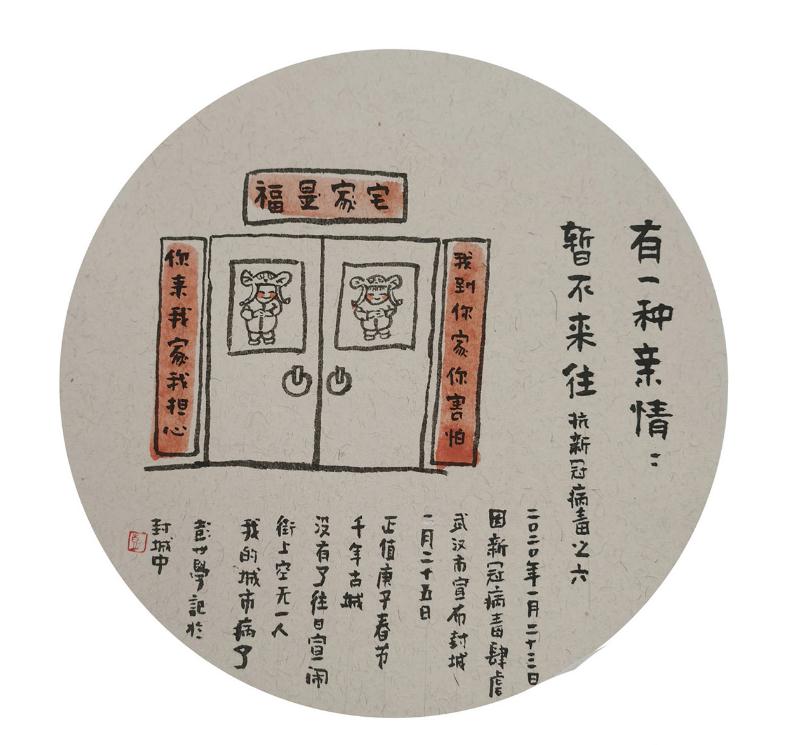 有一种亲情：
暂不来往 抗新冠病毒之六
宅家是福
我到你家你害怕
你来我家我担心
二〇二〇年一月二十三日
因新冠病毒肆虐
武汉市宣布封城
一月二十五日
正值庚子春节
千年古城
没有了往日宣闹
街上空无一人
我的城市病了
彭世學記於
封城中